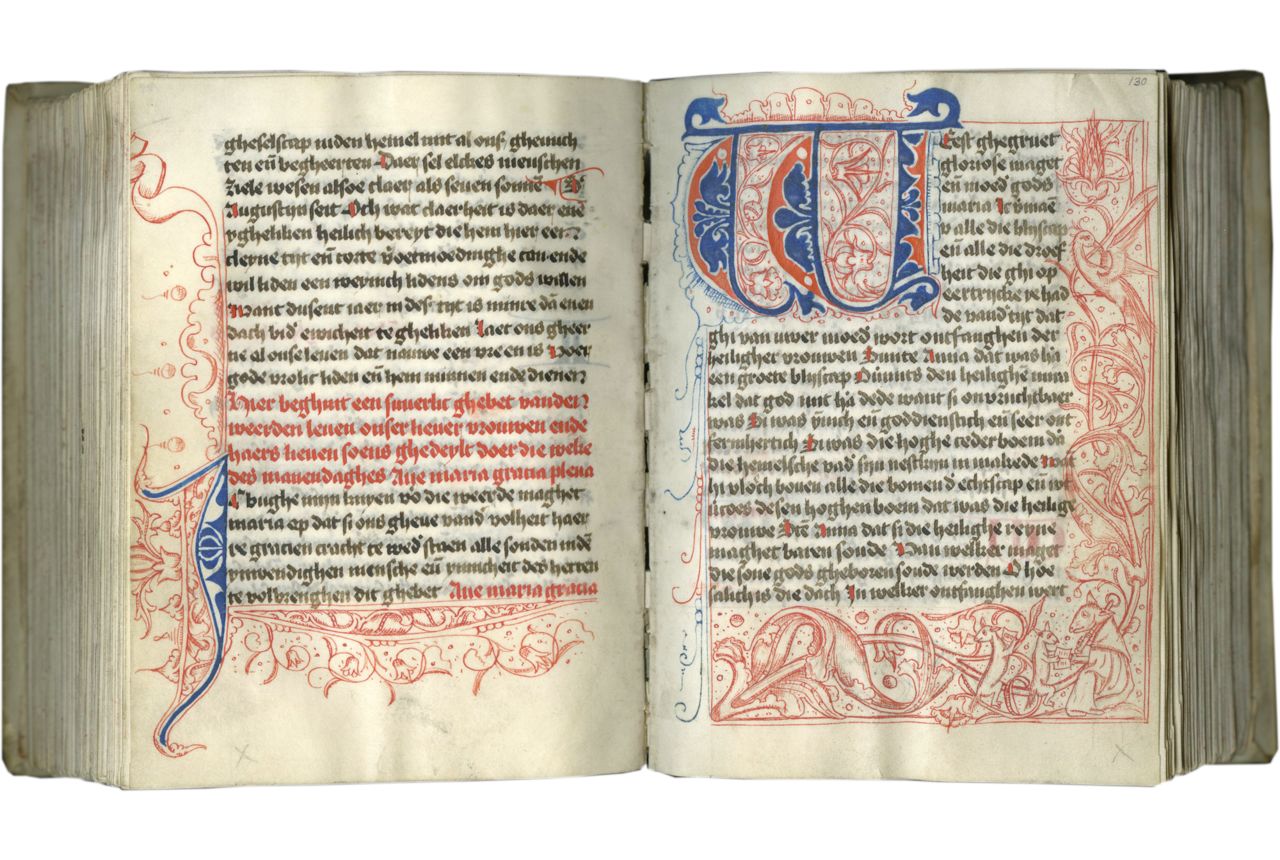 gheselscap inden hemel mit al ons ghenuch
ten en̄ begheerten Daer sel elckes menschen
ziele wesen alsoe claer als seuen sonnē
Augustijn seit Och wat claerheit is daer ene
yghelikken heilich bereyt die hem hier een
cleyne tijt en̄ corte v̓oetmoedinghe can ende
wil liden een weynich lidens om gods willen
Want dusent iaer in des tijt is nauwe dā enen
dach bid' ewicheit te ghelikken Laet ons gheer
ne al onse leuen dat nauwe een vre en is voer
gode vrolic liden en̄ hem minnen ende dienen
Hier beghint een suuerlic ghebet vanden
weerden leuen onser lieuer vrouwen ende
haers lieuen soens ghedeylt doer die weke
des manendaghes Aue maria gracia plena
Ic bughe mijn knyen vo die weerde maghet
maria op dat si ons gheue vand' volheit haer
re gracien cracht te wed' staen alle sonden indē
ynwendighen mensche en̄ ynnicheit des herten
te volbrenghen dit ghebet Aue maria gracia
130
Weest ghegruet
gloriose maget
en̄ moed' gods
maria Ic v̓mae
v alle die bliscap
en̄ alle die droef
heit die ghi op
eertrijcke ye had
de vand' tijt dat
ghi van uwer moed' wort ontfanghen der
heiligher vrouwen sunte Anna dat was hā
een groete bliscap Ouermits den heilighe enn
kel dat god mit hā dede want si onvruchtbaer
was Si was ynnich en̄ goddienstich en̄ seer ont
fermhertich Si was die hoghe ceder boem dā
die hemelsche vad' sijn nestkijn in makede Wāt
hi vloech bouen alle die bomen d' echtscap en̄ wt
v̓coes desen hoghen boem dat was die heilige
vrouwe S̄te Anna dat si die heilighe reyne
maghet baren soude Van welker maget
die sone gods gheboren soude werden O hoe
salich is die dach In welker ontfanghen wert